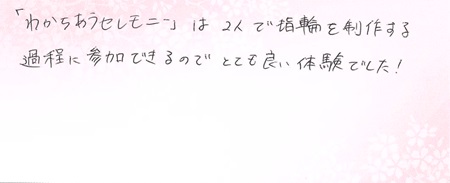 「わかちあうセレモニー」は2人で指輪を制作する
過程に参加できるのでとても良い体験でした！